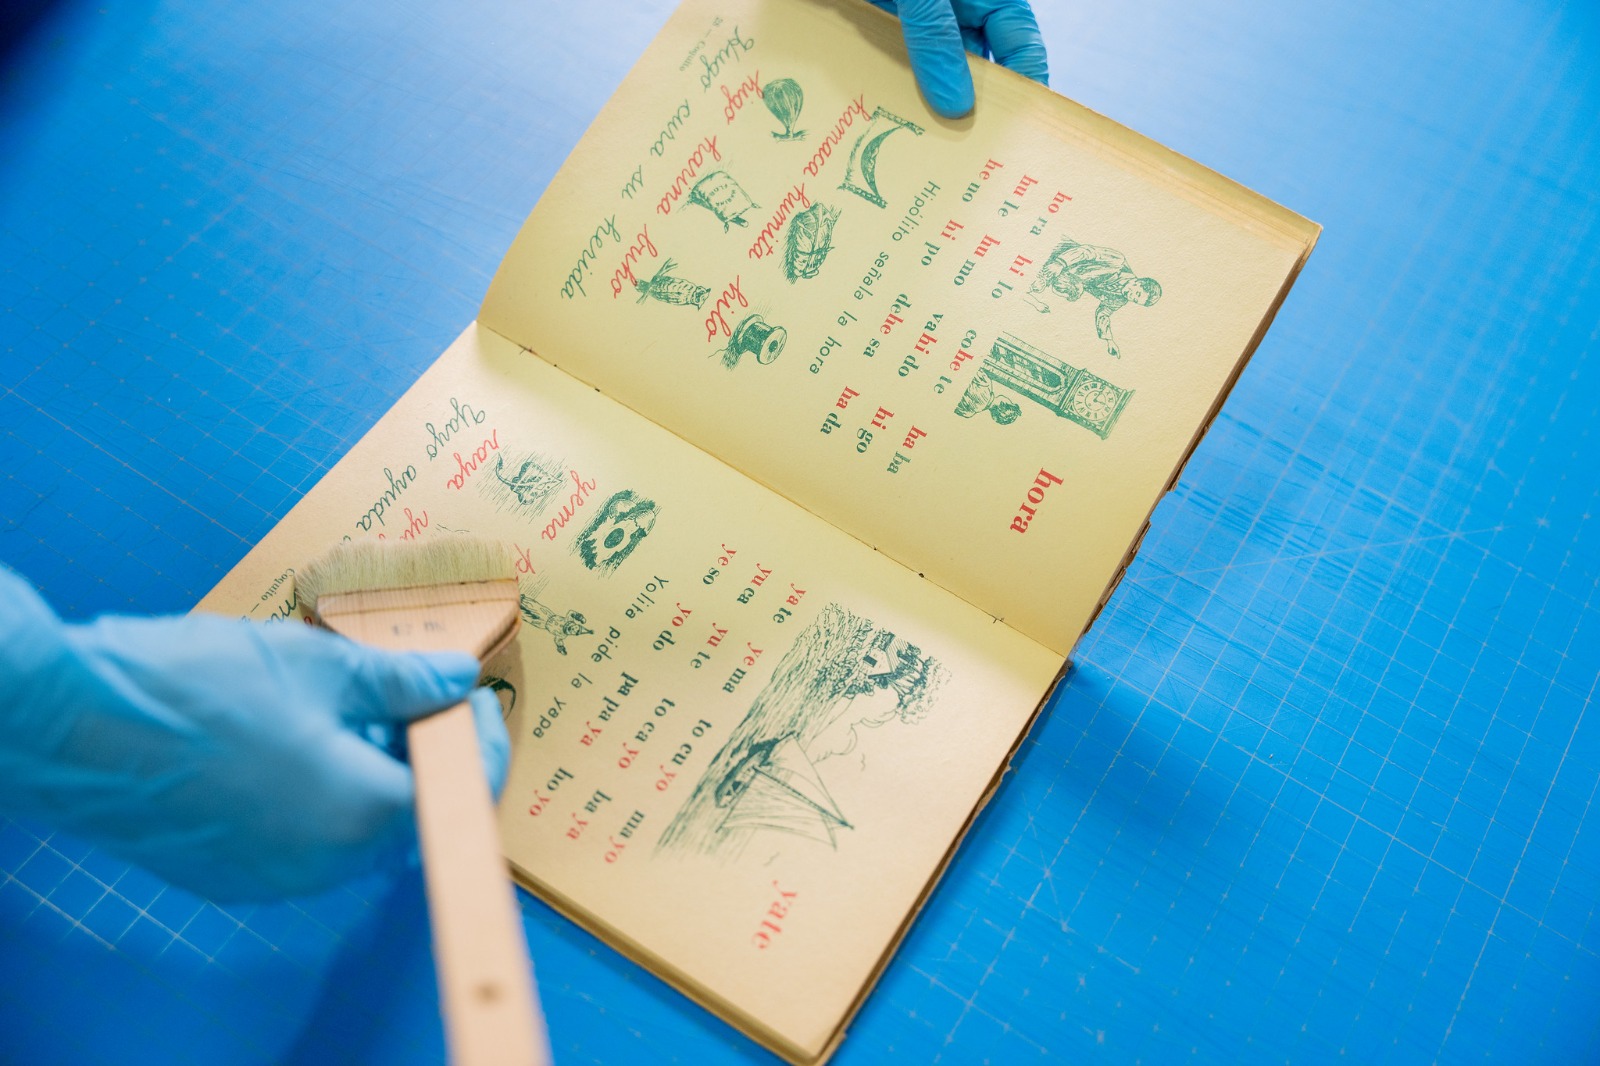 hora
ho ra hi lo co he te ha ba
hu le hu mo va hi do hi go
he no hi po de he sa ha da
Hipólito señala la hora
hamaca humita hilo
higo harina buho
Hugo cura su herida
28. — Coquito
yate
ya te ye ma to cu yo ma yo
yu ca yu te to ca yo ba ya
ye so yo do pa pa ya ho yo
Yolita pide la yapa
yema
raya
Yayo ayuda
Coquito —